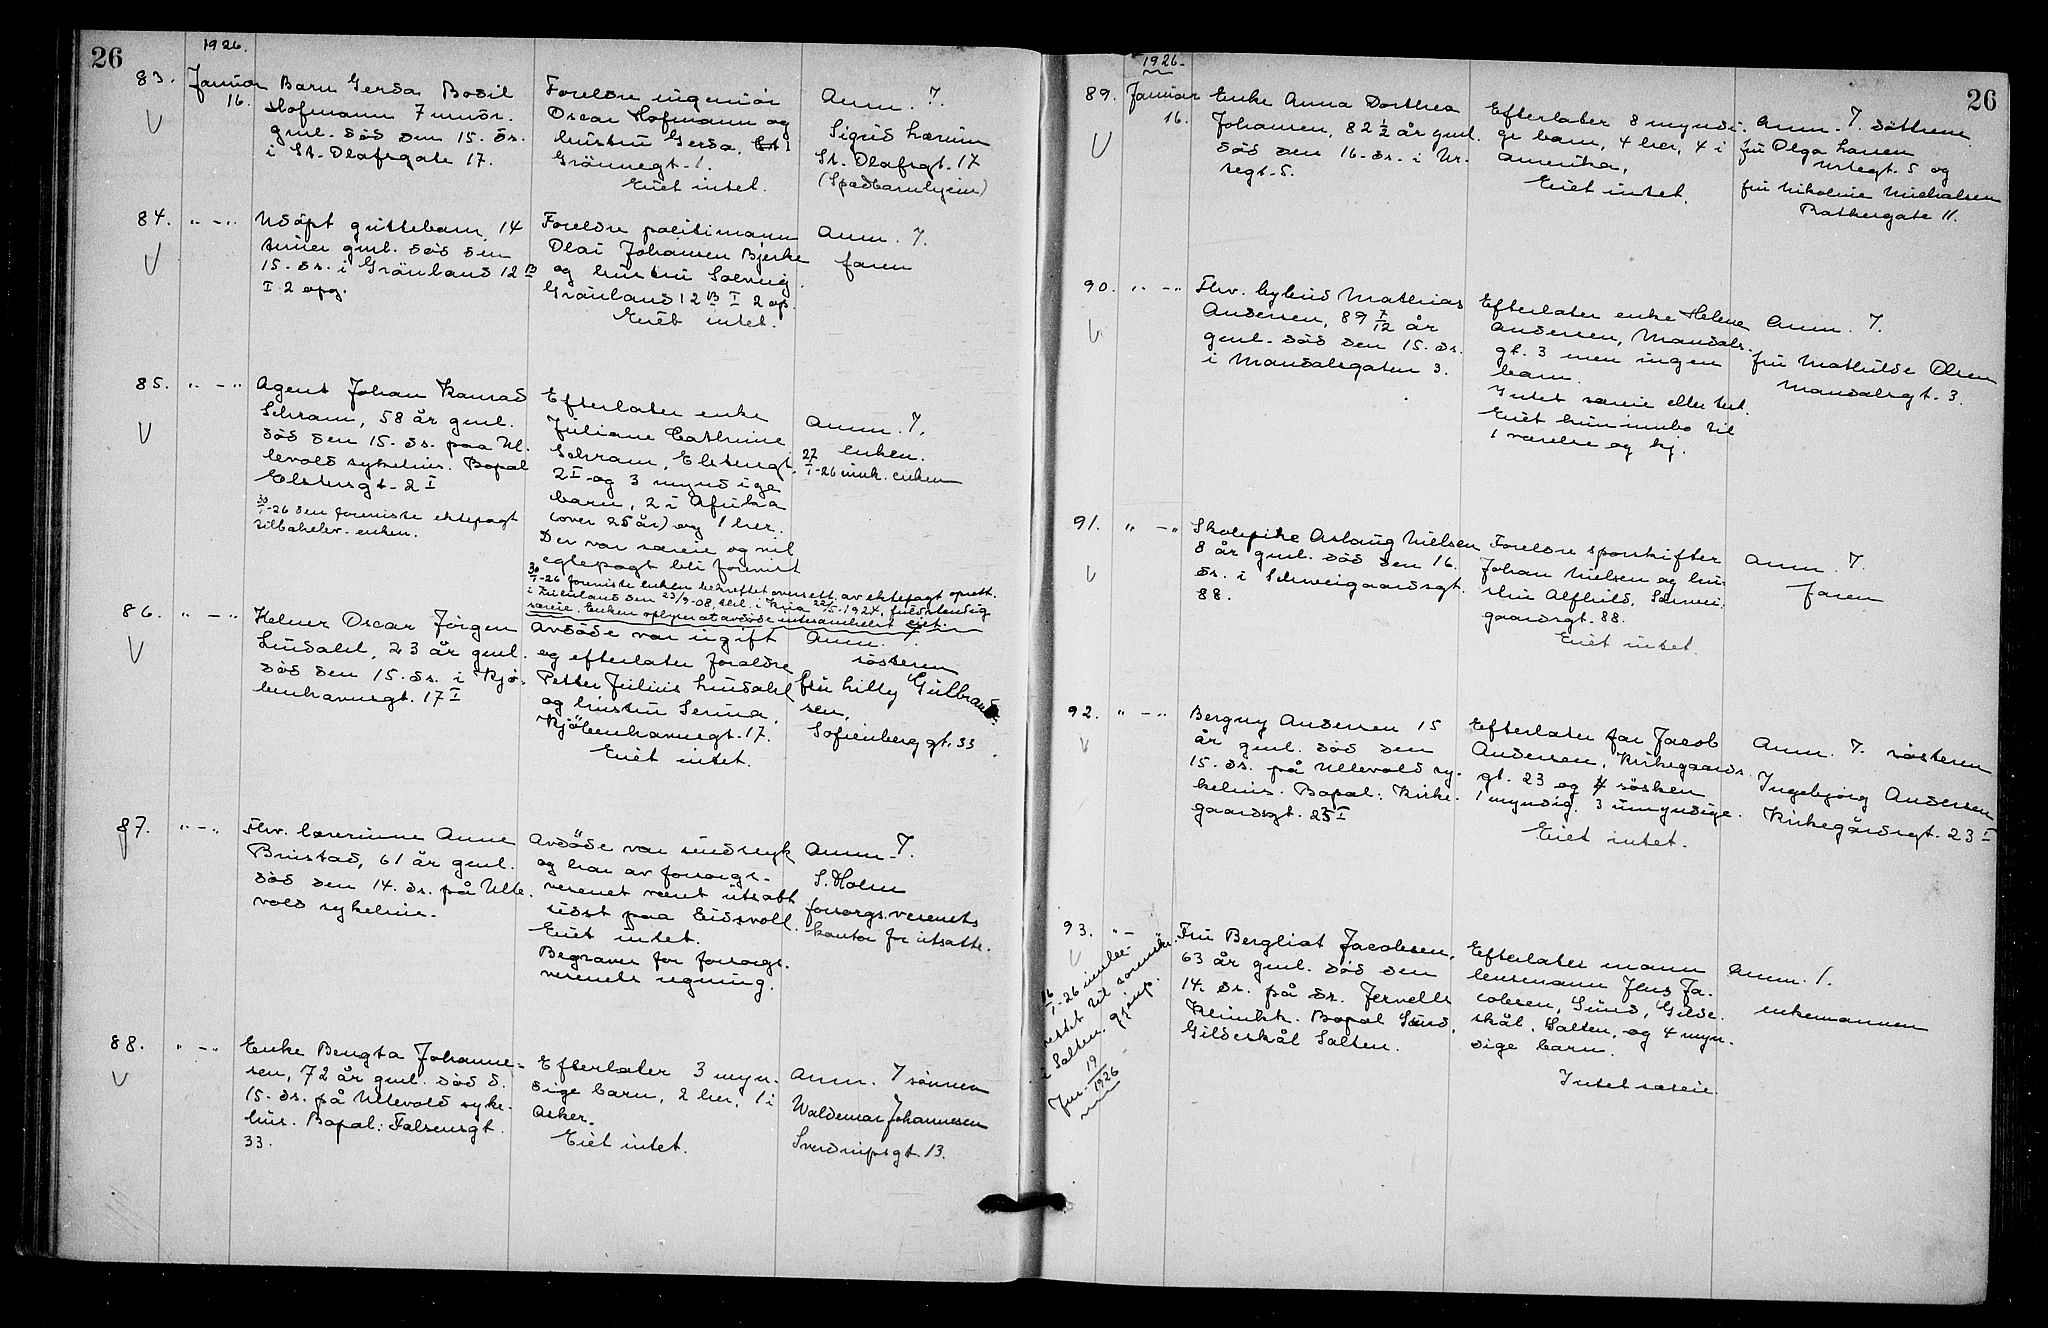 26
1926.
83.
Januar
16.
Barn Gerda Bodil
Hofmann 7 mndr.
gml. död den 15. ds.
i St. Olafsgate 17.
Foreldre ingeniör
Oscar Hofmann og
hustru Gerda,
Grönnegt. 1.
Eiet intet.
Anm. 7.
Sigrid Lærum
St. Olafsgt. 17
(Spædbarnhjem)
84.
" - "
Udöpt guttebarn, 14
timer gml. död den
15. ds. i Grönland 12 B
I 2 opg.
Foreldre politimann
Olai Johansen Bjerke
og hustru Solveig.
Grönland 12 B I 2 op.
Eiet intet.
Anm. 7.
faren
85.
" - "
Agent Johan Konrad
Schram, 58 år gml.
död den 15. ds. paa Ul-
levold sykehus. Bopal
Elstersgt. 2 I
30/1-26 den foreviste ektepagt
tilbakelev. enken.
Efterlater enke
Juliane Cathrine
Schram, Elstersgt.
2 I og 3 myndige
barn, 2 i Afrika
(over 25 år) og 1 her.
Der var særeie og vil
egtepagt bli forevist
30/1-26 foreviste enken bekreftet oversett. av ektepagt oprett.
i den 23/9-08, tinl. i Kria 22/5-1924, fuldstendig
særeie. Enken oplyser at avdöde intetsomhelst eiet.
Anm. 7.
enken.
27/1-26 innk. enken
86.
" - "
Kelner Oscar Jörgen
Lindahl, 23 år gml.
död den 15. ds. i Kjö-
benhavnsgt. 17 I
Avdöde var ugift
og efterlater foreldre
Petter Julius Lindahl
og hustru Serina,
Kjöbenhavnsgt. 17.
Eiet intet.
Anm. 7.
sösteren
fru Lilly Gulbrand-
sen,
Sofienberggt. 33
87.
" - "
Fhv. lærerinne Anne
Brustad, 61 år gml.
död den 14. ds. på Ulle-
vold sykehus.
Avdöde var sindssyk
og har av forsorgs-
vesenet været utsatt
sidst paa Eidsvoll.
Eiet intet.
Begraves for forsorgs-
vesenets regning.
Anm. 7.
S. Holm
forsorgsvesenets
kontor for utsatte.
88.
" - "
Enke Bengta Johanne-
sen, 72 år gml. död d.
15. ds. på Ullevold syke-
hus. Bopal: Falsensgt.
33.
Efterlater 3 myn-
dige barn, 2 her, 1 i
Asker.
Eiet intet.
Anm. 7 sönnen
Waldemar Johannesen
Sverdrupsgt. 13.
26
1926.
89.
Januar
16.
Enke Anna Dorthea
Johansen, 82 1/2 år gml.
död den 16. ds. i Ur-
tegt. 5.
Efterlater 8 myndi-
ge barn, 4 her, 4 i
Amerika,
Eiet intet.
Anm. 7. döttrene
fru Olga Larsen
Urtegt. 5 og
fru Nikoline Michalsen
Rathkesgate 11.
90.
" - "
Fhv. bybud Mathias
Andersen, 89 7/12 år
gml. död den 15. ds.
i Mandalsgaten 3.
Efterlater enke Helene
Andersen, Mandals-
gt. 3 men ingen
barn.
Intet særeie eller test.
Eiet kun innbo til
1 værelse og kj.
Anm. 7.
fru Mathilde Olsen
Mandalsgt. 3.
91.
" - "
Skolepike Aslaug Nielsen
8 år gml. död den 16.
ds. i Schweigaardsgt.
88.
Foreldre sporskifter
Johan Nielsen og hu-
stru Alfhild, Schwei-
gaardsgt. 88.
Eiet intet.
Anm. 7.
faren
92.
" - "
Bergny Andersen 15
år gml. död den
15. ds. på Ullevold sy-
kehus. Bopal: Kirke-
gaardsgt. 23 I
Efterlater far Jacob
Andersen, Kirkegaards-
gt. 23 og 4 sösken
1 myndig, 3 umyndige.
Eiet intet.
Anm. 7. sösteren
Ingebjörg Andersen
Kirkegårdsgt. 23 I
93.
" -
Fru Bergliot Jacobsen,
63 år gml. död den
14. ds. på dr. Jervells
Klinikk. Bopal Sund,
Gildeskål Salten.
Efterlater mann
lensmann Jens Ja-
cobsen, Sund, Gilde-
skål, Salten, og 4 myn-
dige barn.
Intet særeie.
Anm. 7.
enkemannen
16/1-26 innbe-
rettet til sorenskr.
i Salten. gjenp.
Jnr. 19/1926